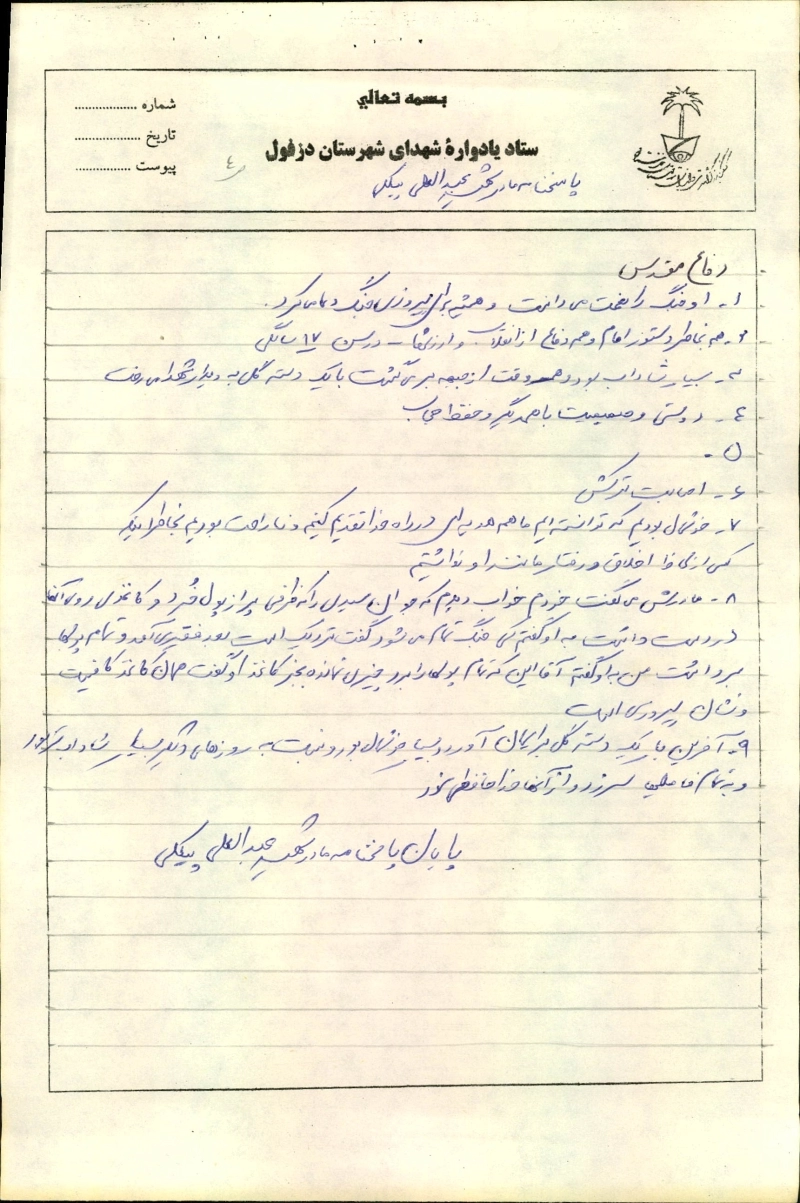 بسمه تعالي
ستاد یادوارهٔ شهدای شهرستان دزفول
شماره .................
تاریخ .................
پیوست .................
٤
پاسخنامه مادر شهید عبدالعلی پیکلی
دفاع مقدس
۱- او جنگ را نعمت می دانست و همیشه برای پیروزی جنگ دعا می کرد.
۲- به خاطر دستور امام و همه دفاع از انقلاب و ارزشها - در سن ۱۷ سالگی
۳- بسیار شاداب بود و هر وقت از جبهه بر می گشت با یک دسته گل به دیدار شهدا می رفت
٤- دوستی و صمیمیت با همدیگر و حفظ حجاب
۵-
۶- اصابت ترکش
۷- خوشحال بودیم که توانسته ایم ما هم هدیه ای در راه خدا تقدیم کنیم و ناراحت بودیم بخاطر اینکه
کسی از لحاظ اخلاق و رفتار مانند او نداشتیم
۸- مادرش می گفت خودم خواب دیدم که جوان سیدی را که ظرفی پر از پول خُرد و کاغذی روی آنها
در دست داشت به او گفتم کی جنگ تمام می شود گفت نزدیک است بعد فقیری آمد و تمام پولها
برداشت من به او گفتم آقا این که تمام پولها را برد چیزی نمانده بجز کاغذ او گفت همان کاغذ کافیست
و نشان پیروزی است
۹- آخرین بار یک دسته گل برایمان آورد و بسیار خوشحال بود و نسبت به روزهای دیگر بسیار شاداب تر بود
و به تمام فامیلها سر زد و از آنها خداحافظی نمود
پایان پاسخنامه مادر شهید عبدالعلی پیکلی